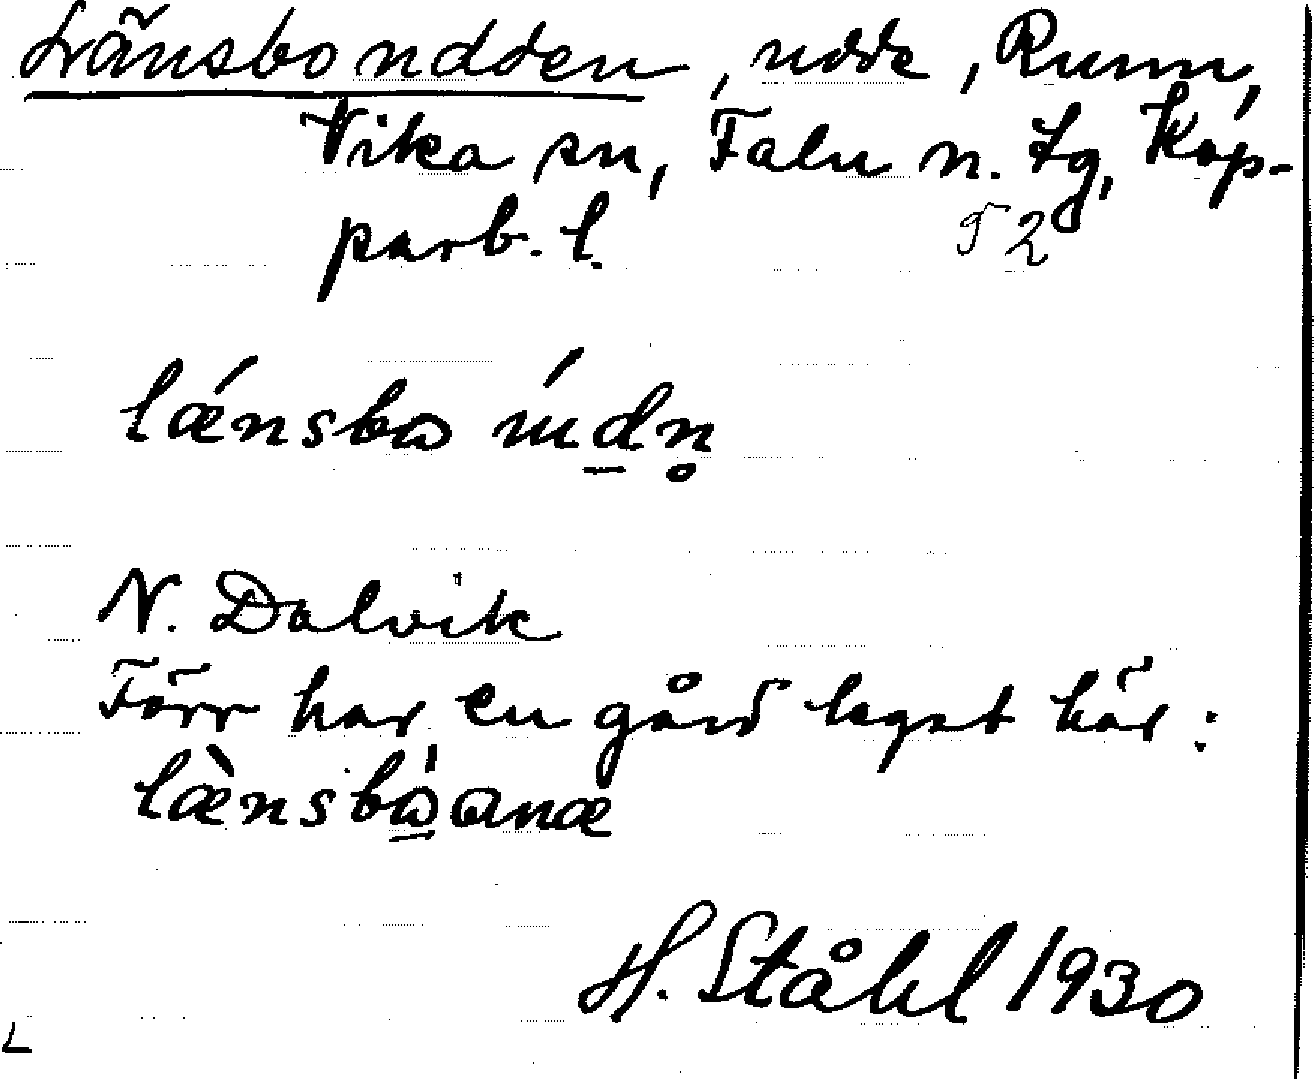 Länsbondden, udde, Runn,
Vika sn, Falu n. tg, Kop-
parb. l.
92
lǽnsbɷ úd̲n̥
N. Dalvik
Förr har en gård legat här:
læ̀nsbɷ̲́ɷnæ
H. Ståhl 1930
L